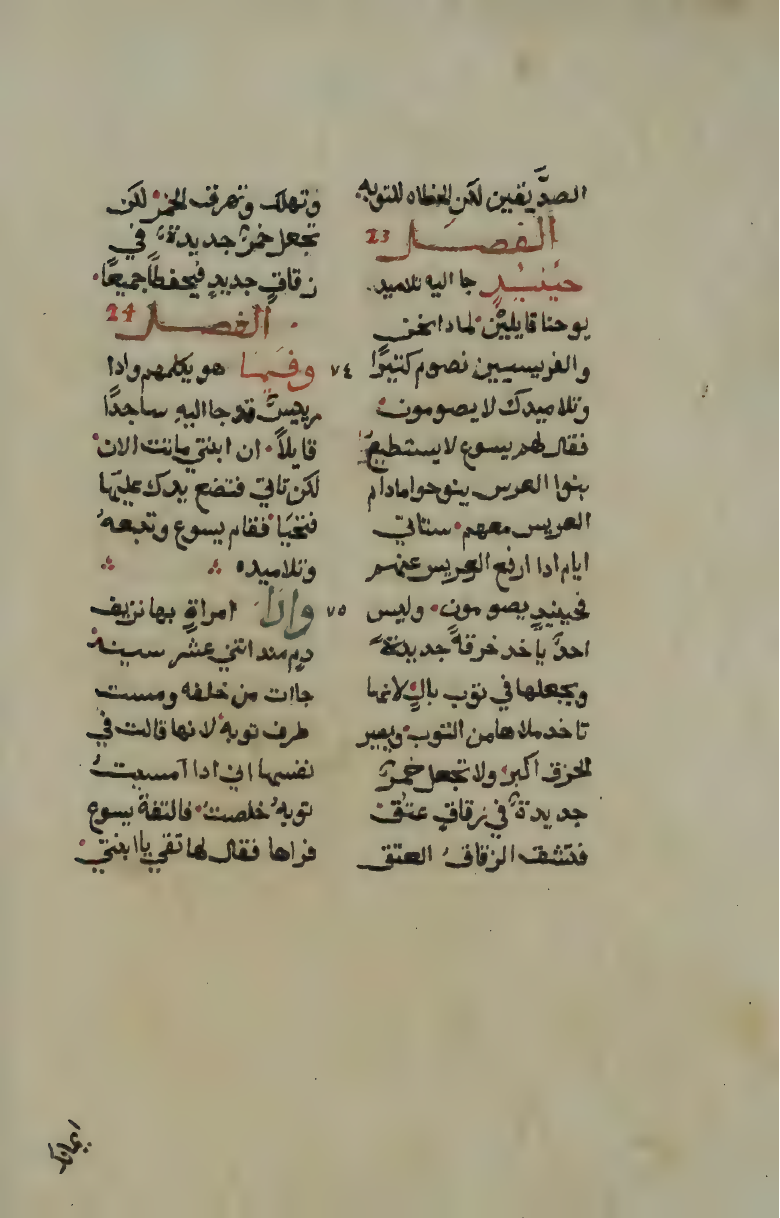 الصدّيقين لكن الخطاه للتوبه
الفصل 23
حينيدٍ جا اليه تلاميد
يوحنا قايلين لمادا نحن
والفريسيين نصوم كتيرًا
وتلاميدك لا يصومون
فقال لهم يسوع لا يستطيع
بنوا العرس ينوحوا مادام
العريس معهم ستاتي
ايام ادا ارفع العريس عنهم
فحينيدٍ يصومون وليس
احدٌ ياخد خرقةً جديدةً
ويجعلها في توب بالٍ لانها
تاخد ملاها من التوب ويصير
الخرق اكبر ولا تجعل خمرٌ
جديدةٌ في زقاقٍ عتق
فتنشق الزقاق العتق
وتهلك وتهرق الخمر لكن
تجعل خمرٌ جديدةٌ في
زقاقٍ جديدٍ فيحفظا جميعًا
الفصل 24
٧٤ وفيما هو يكلمهم وادا
بريسٌ قد جا اليهِ ساجدًا
قايلاً ان ابنتي ماتت الان
لكن تاتي فتضع يدك عليها
فتحيا فقام يسوع وتبعه
وتلاميده
٧٥ وادا امراةٍ بها نزيف
دمٍ مند اتني عشر سينه
جاات من خلفه ومست
طرف توبه لانها قالت في
نفسها اني ادا امسيت
توبه خلصت فالتفة يسوع
فراها فقال لها تقي يا ابنتي
ايمانك